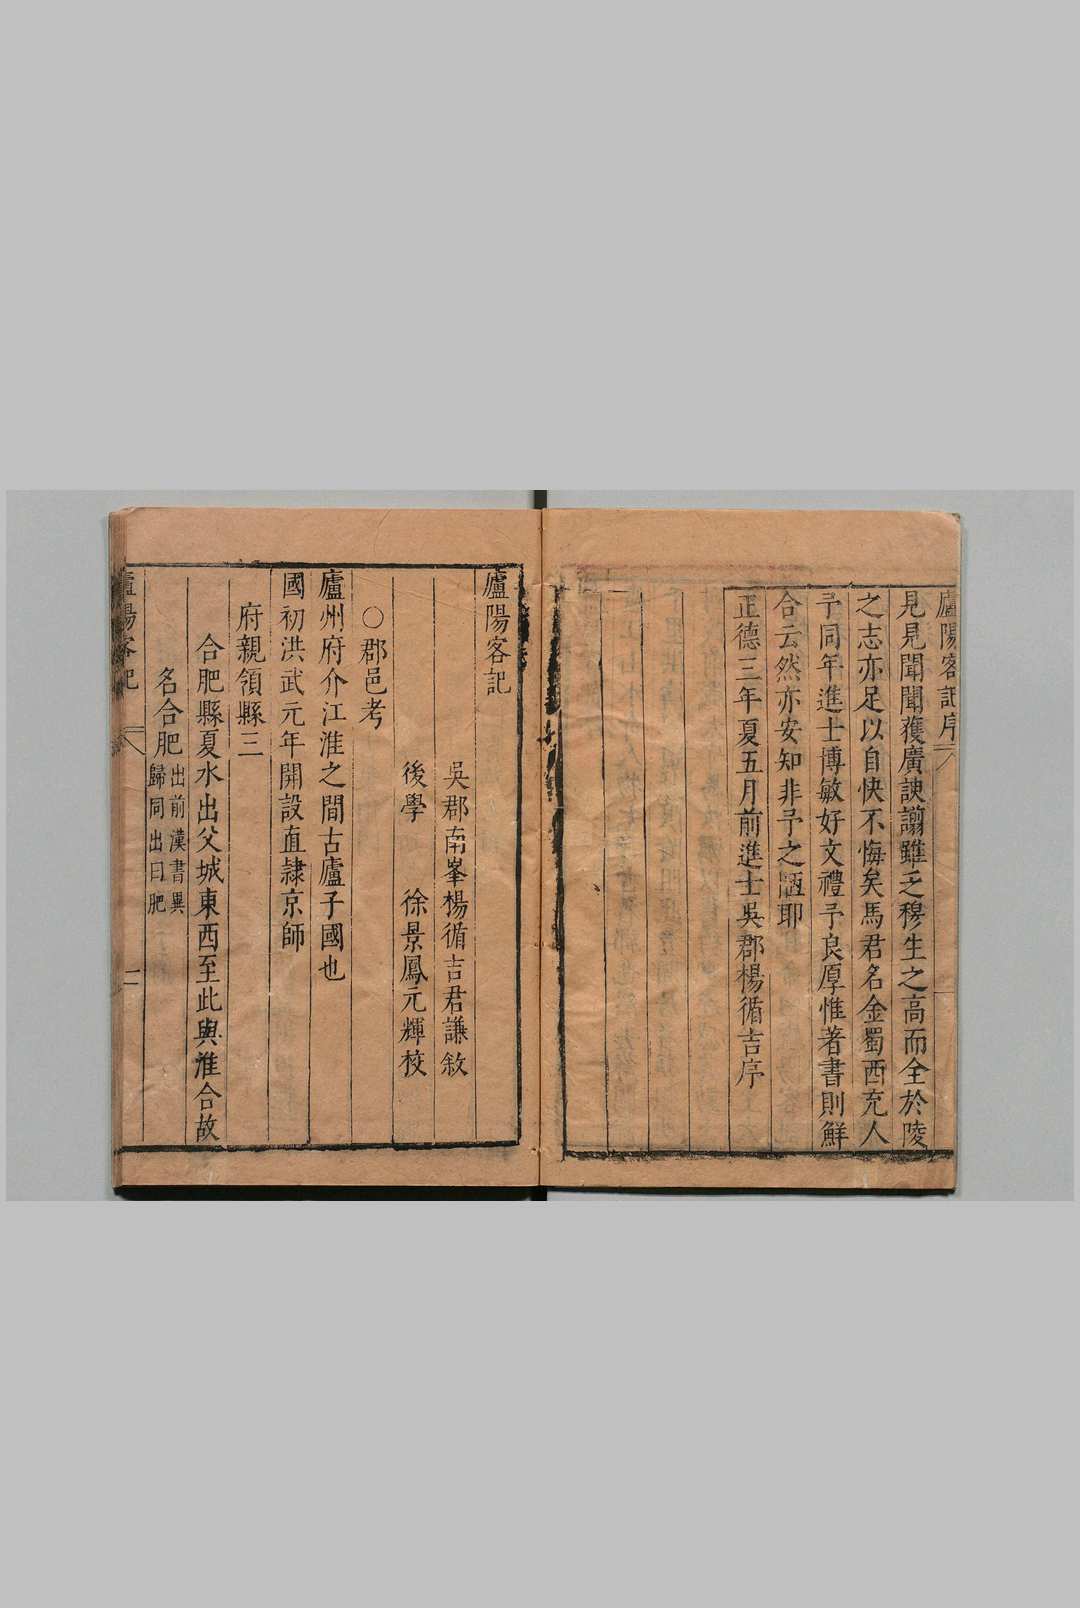 廬陽客記序
見見聞聞獲廣諛謭雖乏穆生之高而全於陵
之志亦足以自快不悔矣馬君名金蜀西充人
予同年進士博敏好文禮予良厚惟著書則鮮
合云然亦安知非予之陋耶
正德三年夏五月前進士吳郡楊循吉序
廬陽客記
吳郡南峯楊循吉君謙敘
後學 徐景鳳元輝校
○郡邑考
廬州府介江淮之間古廬子國也
國初洪武元年開設直隷京師
府親領縣三
合肥縣夏水出父城東西至此與淮合故
名合肥出前漢書異
歸同出曰肥
廬陽客記
二